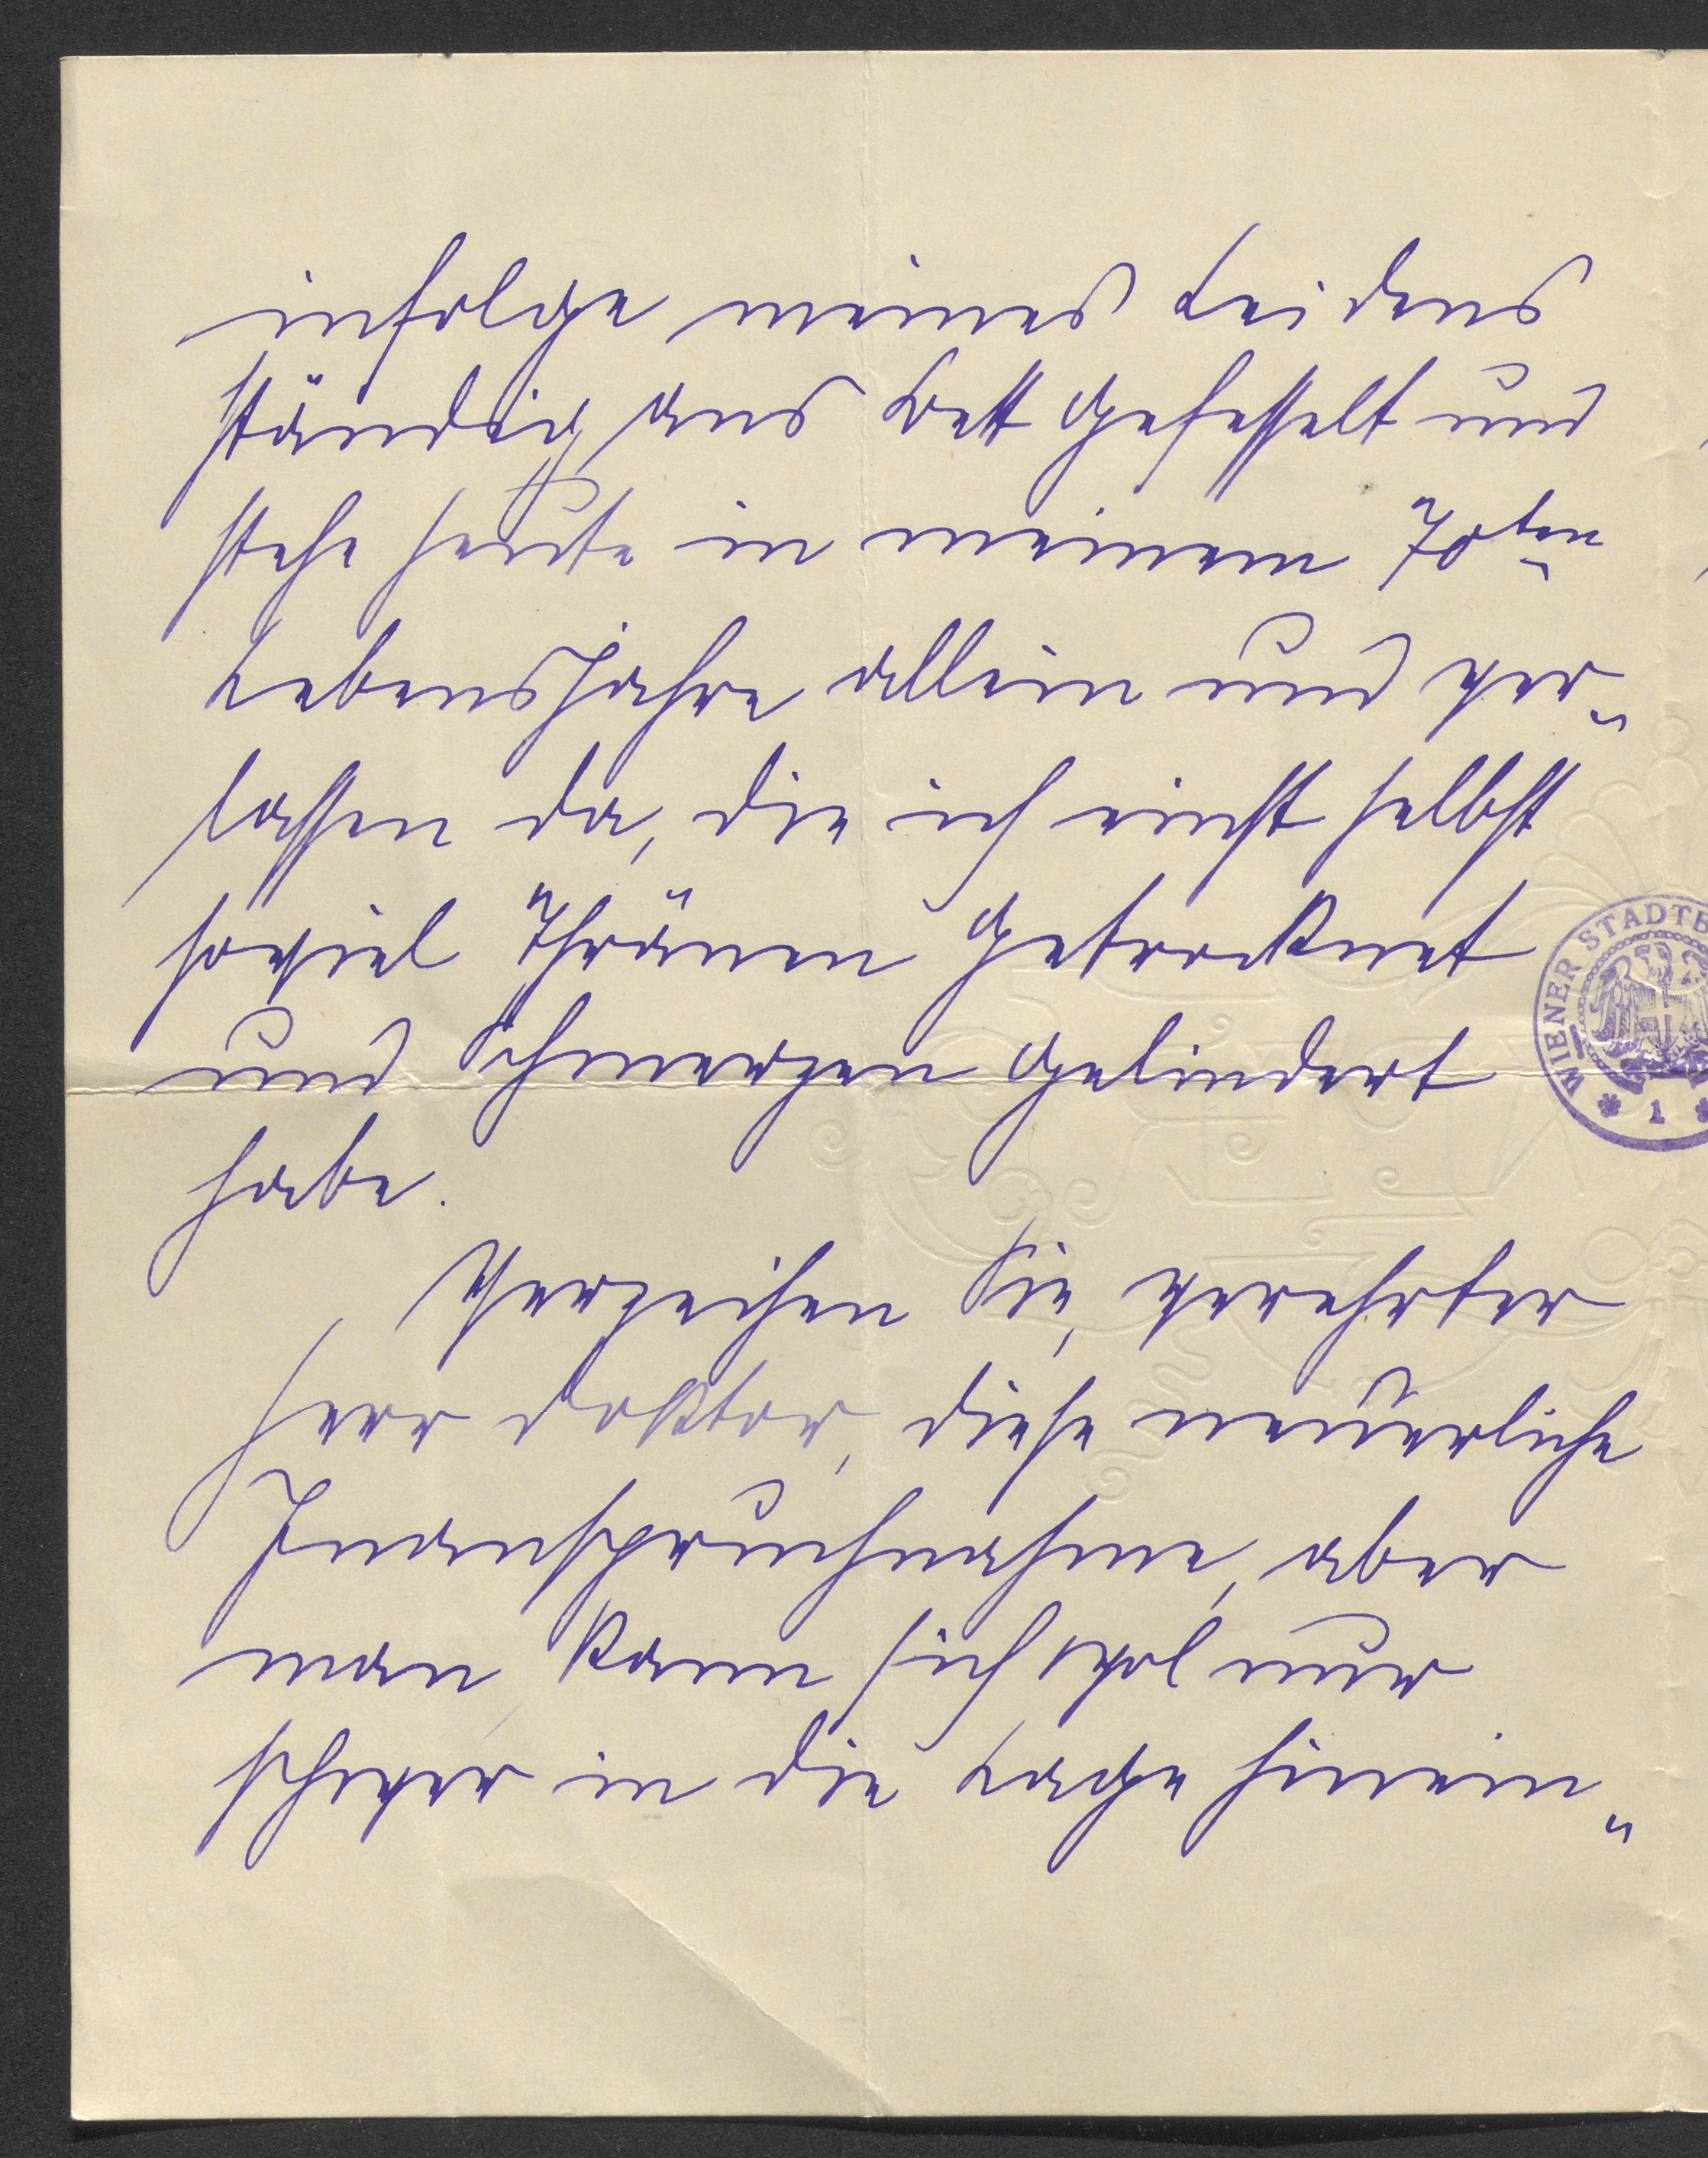 infolge meines Leidens
ständig ans Bett gefesselt und
stehe heute in meinem 70ten
Lebensjahre allein und ver„
lassen da, die ich einst selbst
soviel Thränen getrocknet
und Schmerzen gelindert
habe.
Verzeihen Sie, verehrter
Herr Doktor, diese neuerliche
Inanspruchnahme, aber
man kann sich wol nur
schwer in die Lage hinein„
WIENER STADTB
* 1 *